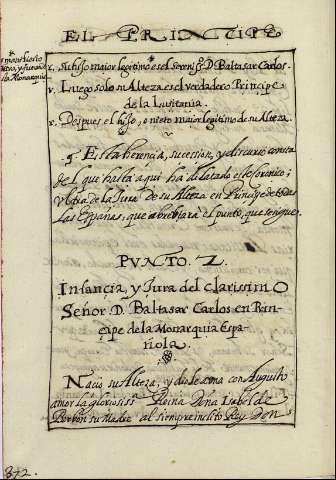 EL PRINCIPE
t. Su hijo maior legitimo es el Serenis.º D. Baltasar Carlos.
v. Luego solo su Alteza es el verdadero Principe
de la Lusitania.
x. Despues el hijo, o nieto maior legitimo de su Alteza.
¶ Esta herencia, sucesion, y discurso consta
del que hasta aqui ha dilatado este
de la Jura de su Alteza en Principe de todas
las Españas, que abreviará el punto, que se sigue.
PVNTO. 2.
Infançia, y Jura del clarissimo
Señor D. Baltasar Carlos en Prin
çipe de la Monarquia Espa
ñola.
Naçio su Alteza, y dio le a una con Augusto
amor la gloriosiss.ª Reina Doña Isabel de
Borbon su Madre al siempre inclito Rey Don
372.